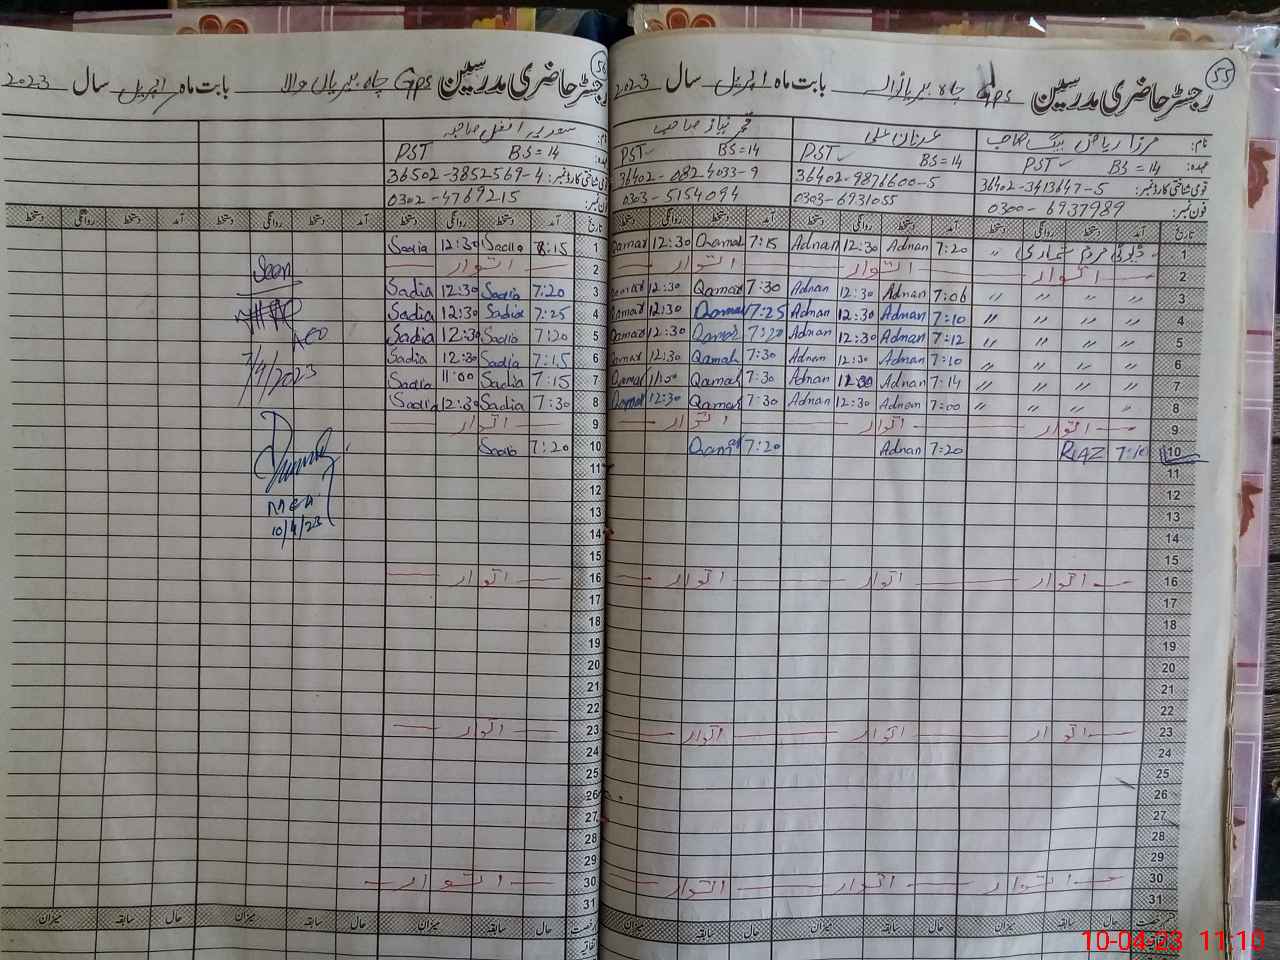 55
رجسٹر حاضری مدرسین GPS چاہ بابت ماہ اپریل سال 2023
نام: مرزا ریاض بیگ صاحب
عہدہ: PST BS=14
قومی شناختی کارڈ نمبر: 36402-3413647-5
فون نمبر: 0300-6937989
عدنان علی
PST BS=14
36402-9876600-5
0303-6731055
قمر نیاز صاحب
PST BS=14
36402-0824033-9
0303-5154094
تاریخ آمد دستخط روانگی دستخط آمد دستخط روانگی دستخط آمد دستخط روانگی دستخط
1 ڈیوٹی مردم شماری 〃 7:20 Adnan 12:30 Adnan 7:15 Qamar 12:30 Qamar
2 اتوار اتوار اتوار
3 〃 〃 〃 〃 7:06 Adnan 12:30 Adnan 7:30 Qamar 12:30 Qamar
4 〃 〃 〃 〃 7:10 Adnan 12:30 Adnan 7:25 Qamar 12:30 Qamar
5 〃 〃 〃 〃 7:12 Adnan 12:30 Adnan 7:20 Qamar 12:30 Qamar
6 〃 〃 〃 〃 7:10 Adnan 12:30 Adnan 7:30 Qamar 12:30 Qamar
7 〃 〃 〃 〃 7:14 Adnan 12:30 Adnan 7:30 Qamar 11:00 Qamar
8 〃 〃 〃 〃 7:00 Adnan 12:30 Adnan 7:30 Qamar 12:30 Qamar
9 اتوار اتوار اتوار
10 7:10 RIAZ 7:20 Adnan 7:20 Qamar
11
12
13
14
15
16 اتوار اتوار اتوار
17
18
19
20
21
22
23 اتوار اتوار اتوار
24
25
26
27
28
29
30 اتوار اتوار اتوار
31
حال سابقہ میزان حال سابقہ میزان حال سابقہ میزان
56
رجسٹر حاضری مدرسین GPS چاہ بابت ماہ اپریل سال 2023
نام: سعدیہ افضل صاحبہ
عہدہ: PST BS=14
قومی شناختی کارڈ نمبر: 36502-3852569-4
فون نمبر: 0302-4769215
تاریخ آمد دستخط روانگی دستخط آمد دستخط روانگی دستخط آمد دستخط روانگی دستخط
1 8:15 Sadia 12:30 Sadia
2 اتوار
3 7:20 Sadia 12:30 Sadia
4 7:25 Sadia 12:30 Sadia
5 7:20 Sadia 12:30 Sadia
6 7:15 Sadia 12:30 Sadia
7 7:15 Sadia 11:00 Sadia
8 7:30 Sadia 12:30 Sadia
9 اتوار
10 7:20 Sadia
11
12
13
14
15
16 اتوار
17
18
19
20
21
22
23 اتوار
24
25
26
27
28
29
30 اتوار
31
حال سابقہ میزان حال سابقہ میزان حال سابقہ میزان
Seen
AEO
7/4/2023
MEA
10/4/23
10-04-23 11:10